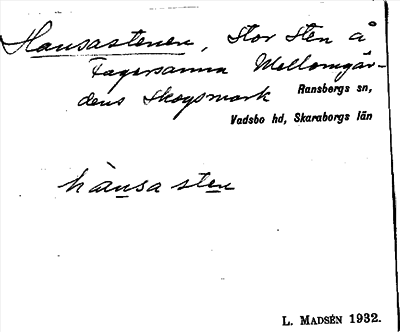 Hansastenen, Stor sten å
Fagersanna Mellomgår-
dens skogsmark Ransbergs sn,
Vadsbo hd, Skaraborgs län
hànsa sten
L. MADSÉN 1932.